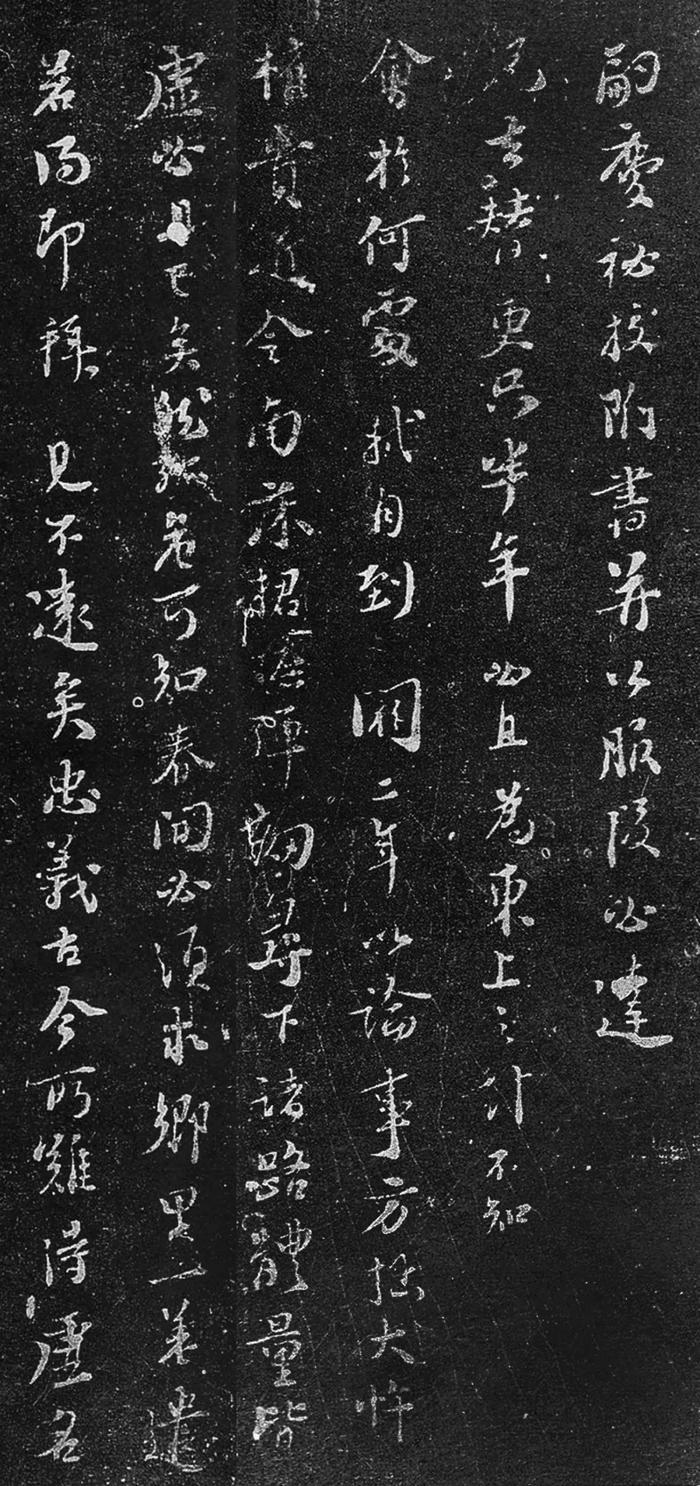 嗣慶秘校附書并公服段必達
兄去替更只半年必且為東上之計不知
會於何處軾自到闕二年以論事方拙大忤
權貴近令南床捃摭彈劾尋下諸路體量皆
虛必且已矣然孤危可知春間必須求鄉里一差遣
若得即拜見不遠矣忠義古今所難得虛名